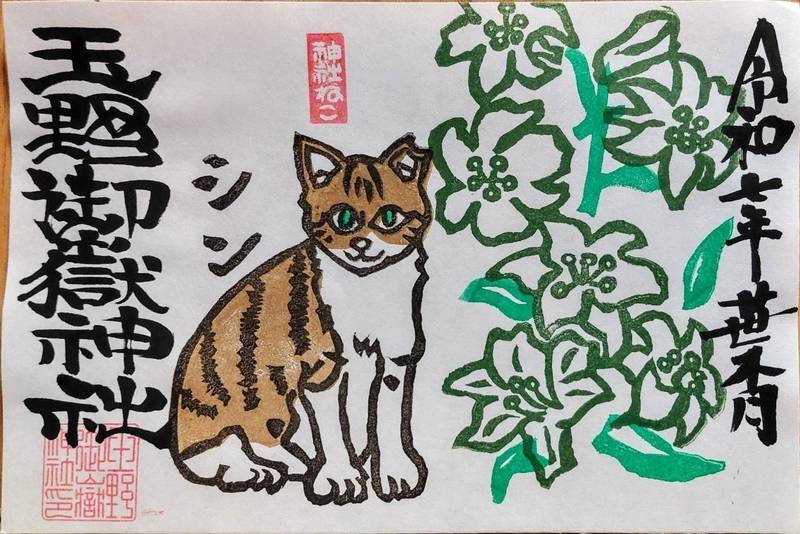 令和七年葉月
神社ねこ
シン
玉野御嶽神社
玉野
御嶽
神社印